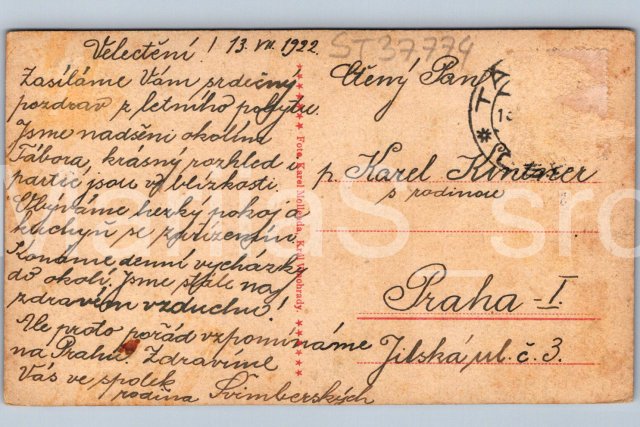 Velectění! 13. VII. 1922.
Zasíláme Vám srdečný
pozdrav z letního pobytu.
Jsme nadšeni okolím
Tábora, krásný rozhled i
partie jsou v blízkosti.
Užíváme hezký pokoj a
kuchyň se zařízením.
Konáme denní vycházky
do okolí. Jsme stále na
zdravém vzduchu!
Ale proto pořád vzpomínáme
na Prahu. Zdravíme
Vás ve spolek
rodina Švimberských
ST37774
Ctěný Pan
p. Karel Kintzner
s rodinou
Praha - I.
Jilská ul. č. 3.
Foto Karel Král. Vinohrady.
* TÁ